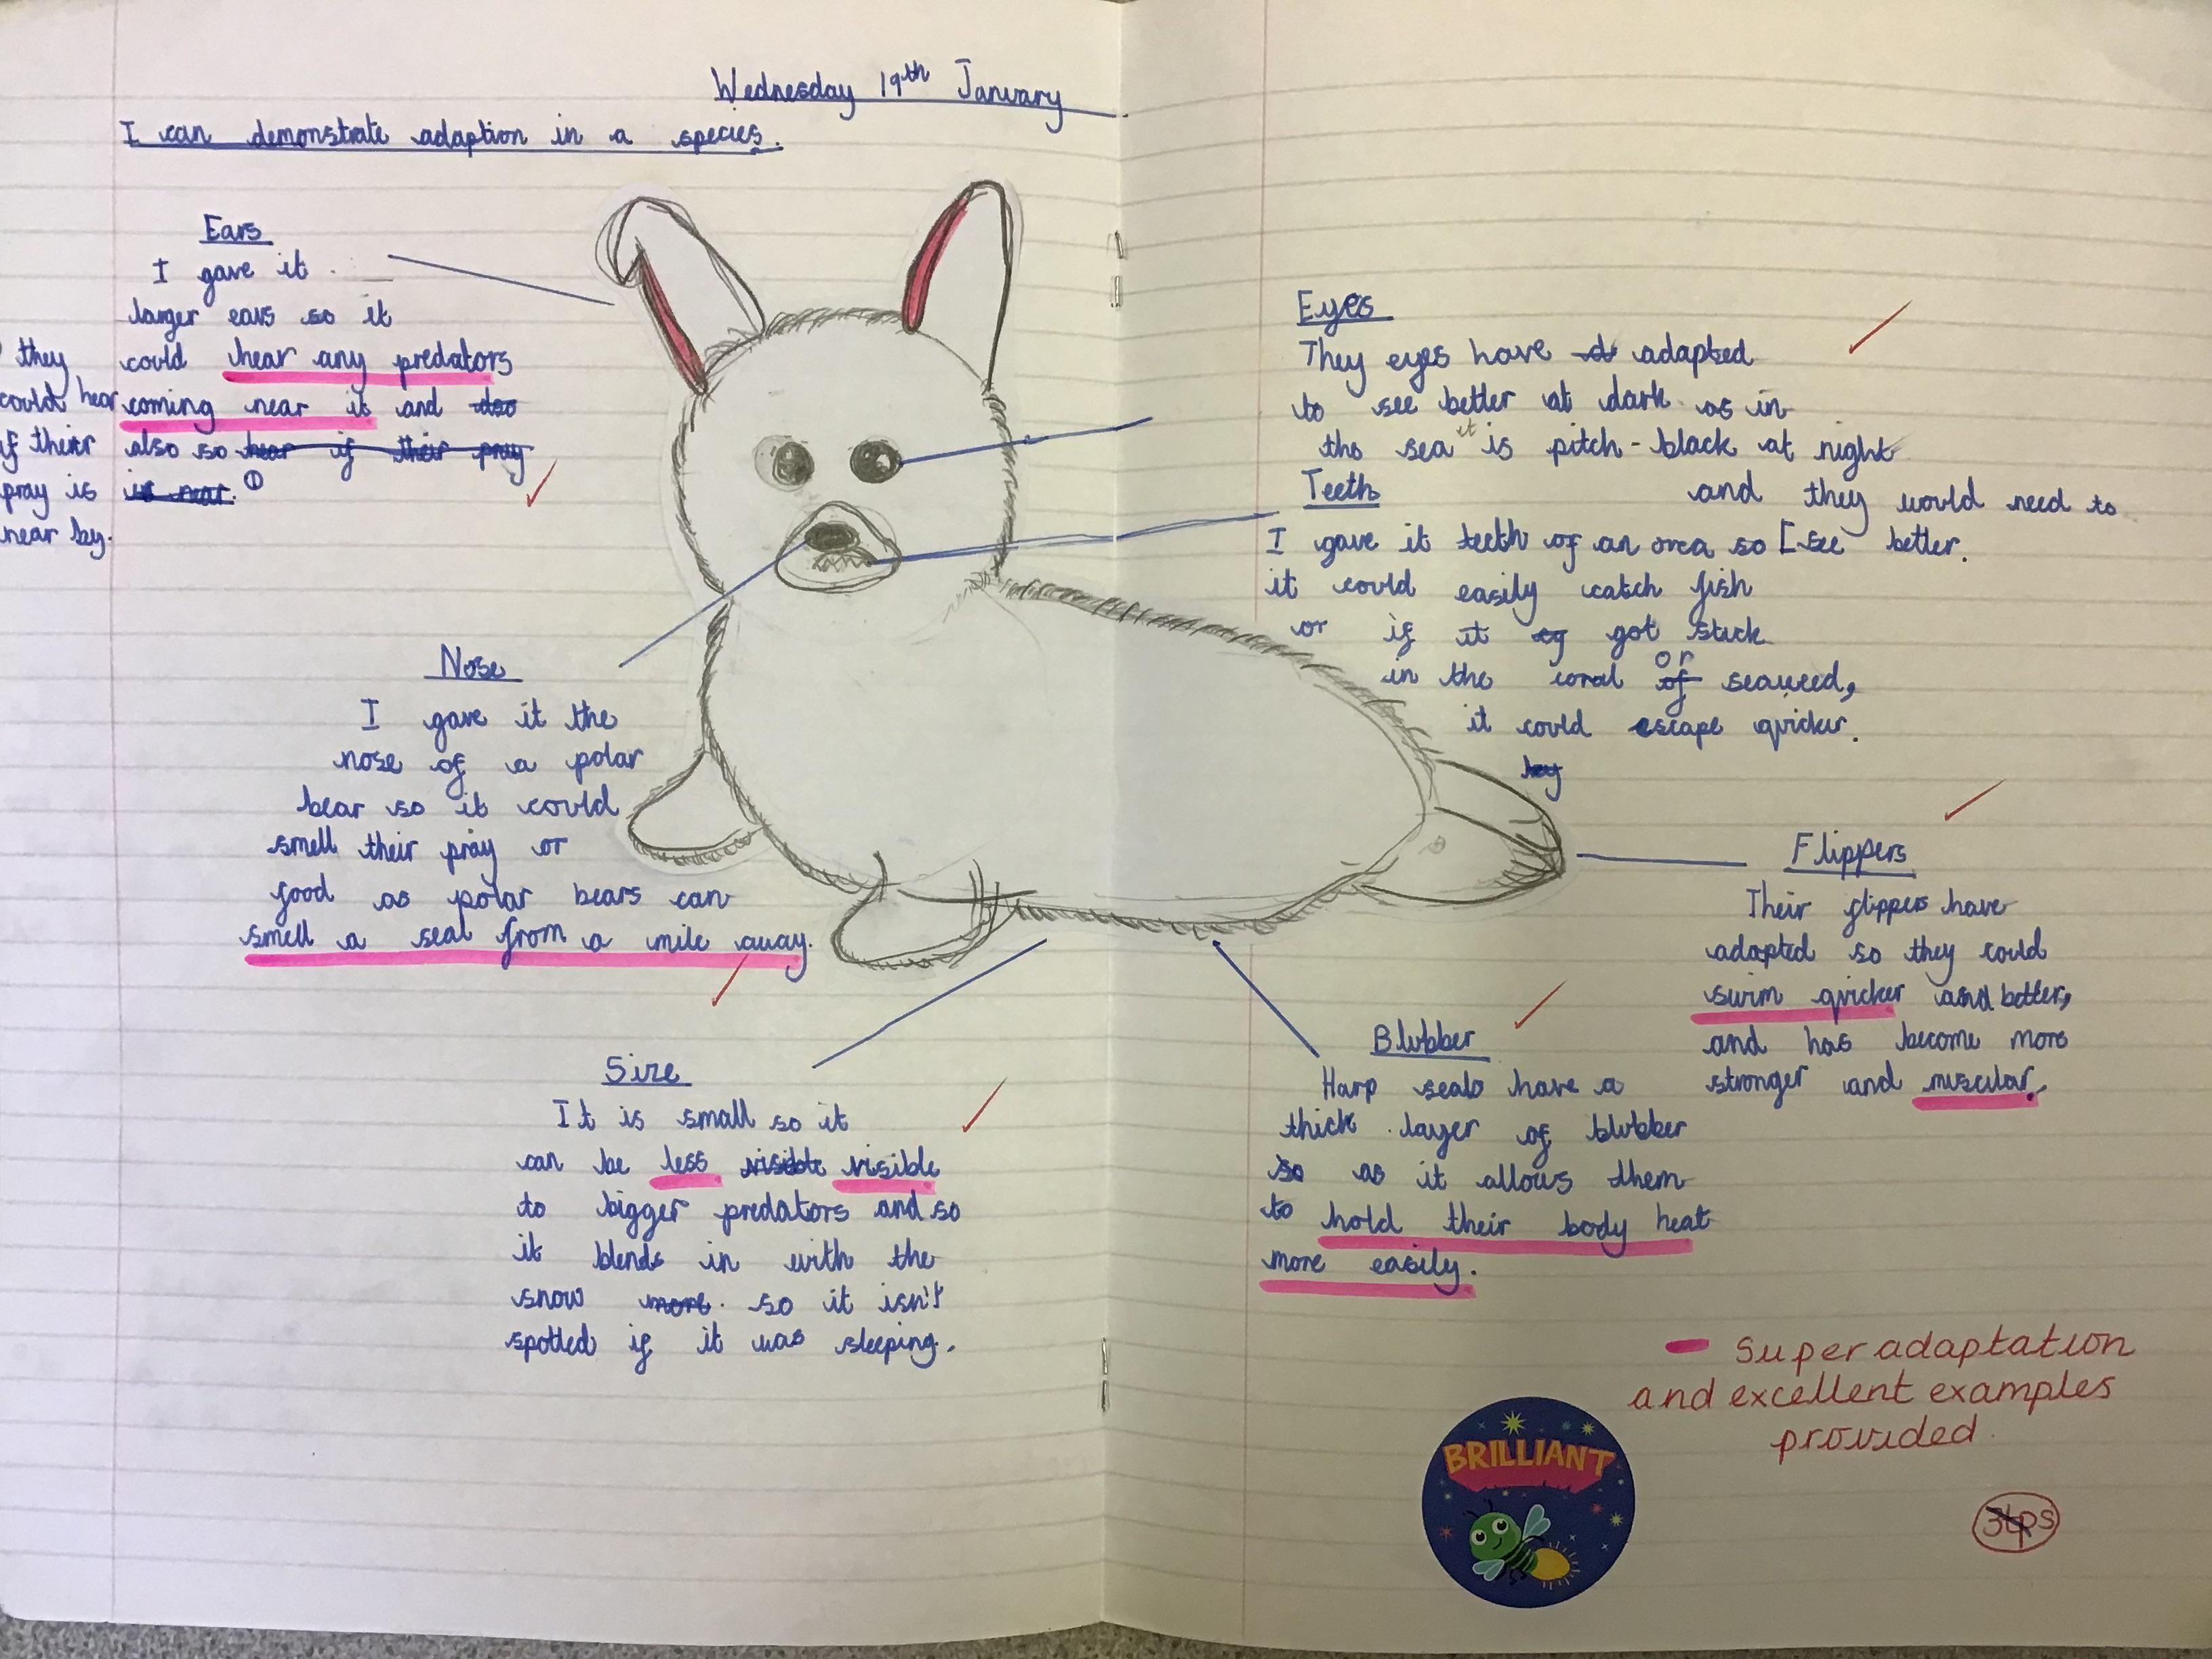 Wednesday 19th January
I can demonstrate adaption in a species.
Ears
I gave it
larger ears so it
could hear any predators
coming near it and also
also so hear if their pray
is near. ①
they
could hear
if their
pray is
near by.
Nose
I gave it the
nose of a polar
bear so it could
smell their pray or
food as polar bears can
smell a seal from a mile away.
Size
It is small so it
can be less visible visible
to bigger predators and so
it blends in with the
snow more. so it isn't
spotted if it was sleeping.
Eyes
They eyes have adapted
to see better at dark as in
the sea it is pitch-black at night
and they would need to
[see better.
Teeth
I gave it teeth of an orca so
it could easily catch fish
or if it got stuck
in the coral of or seaweed,
it could escape quicker.
by
Flippers
Their flippers have
adapted so they could
swim quicker and better,
and has become more
stronger and muscular.
Blubber
Harp seals have a
thick layer of blubber
so as it allows them
to hold their body heat
more easily.
Super adaptation
and excellent examples
provided.
BRILLIANT